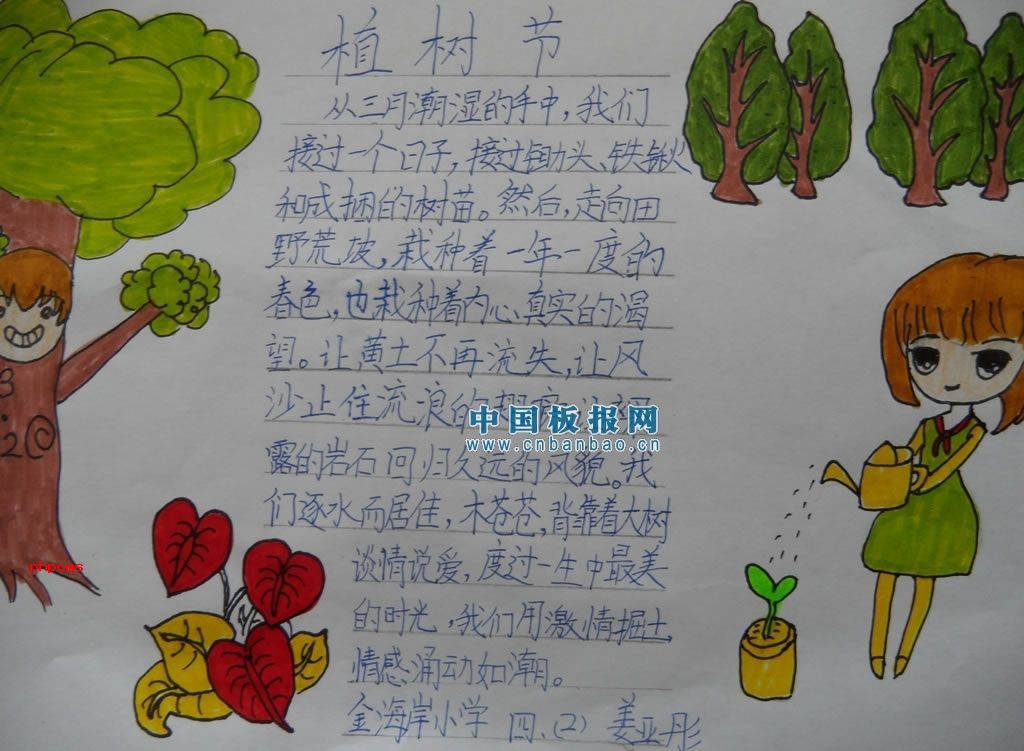 植树节
从三月潮湿的手中,我们
接过一个日子,接过锄头、铁锹
和成捆的树苗。然后,走向田
野荒坡,栽种着一年一度的
春色,也栽种着内心真实的渴
望。让黄土不再流失,让风
沙止住流浪的
中国板报网
www.cnbanbao.cn
露的岩石回归久远的风貌。我
们逐水而居住,木苍苍,背靠着大树
谈情说爱,度过一生中最美
的时光,我们用激情掘土,
情感涌动如潮。
金海岸小学 四.(2) 姜亚彤
3.12@
phpcms